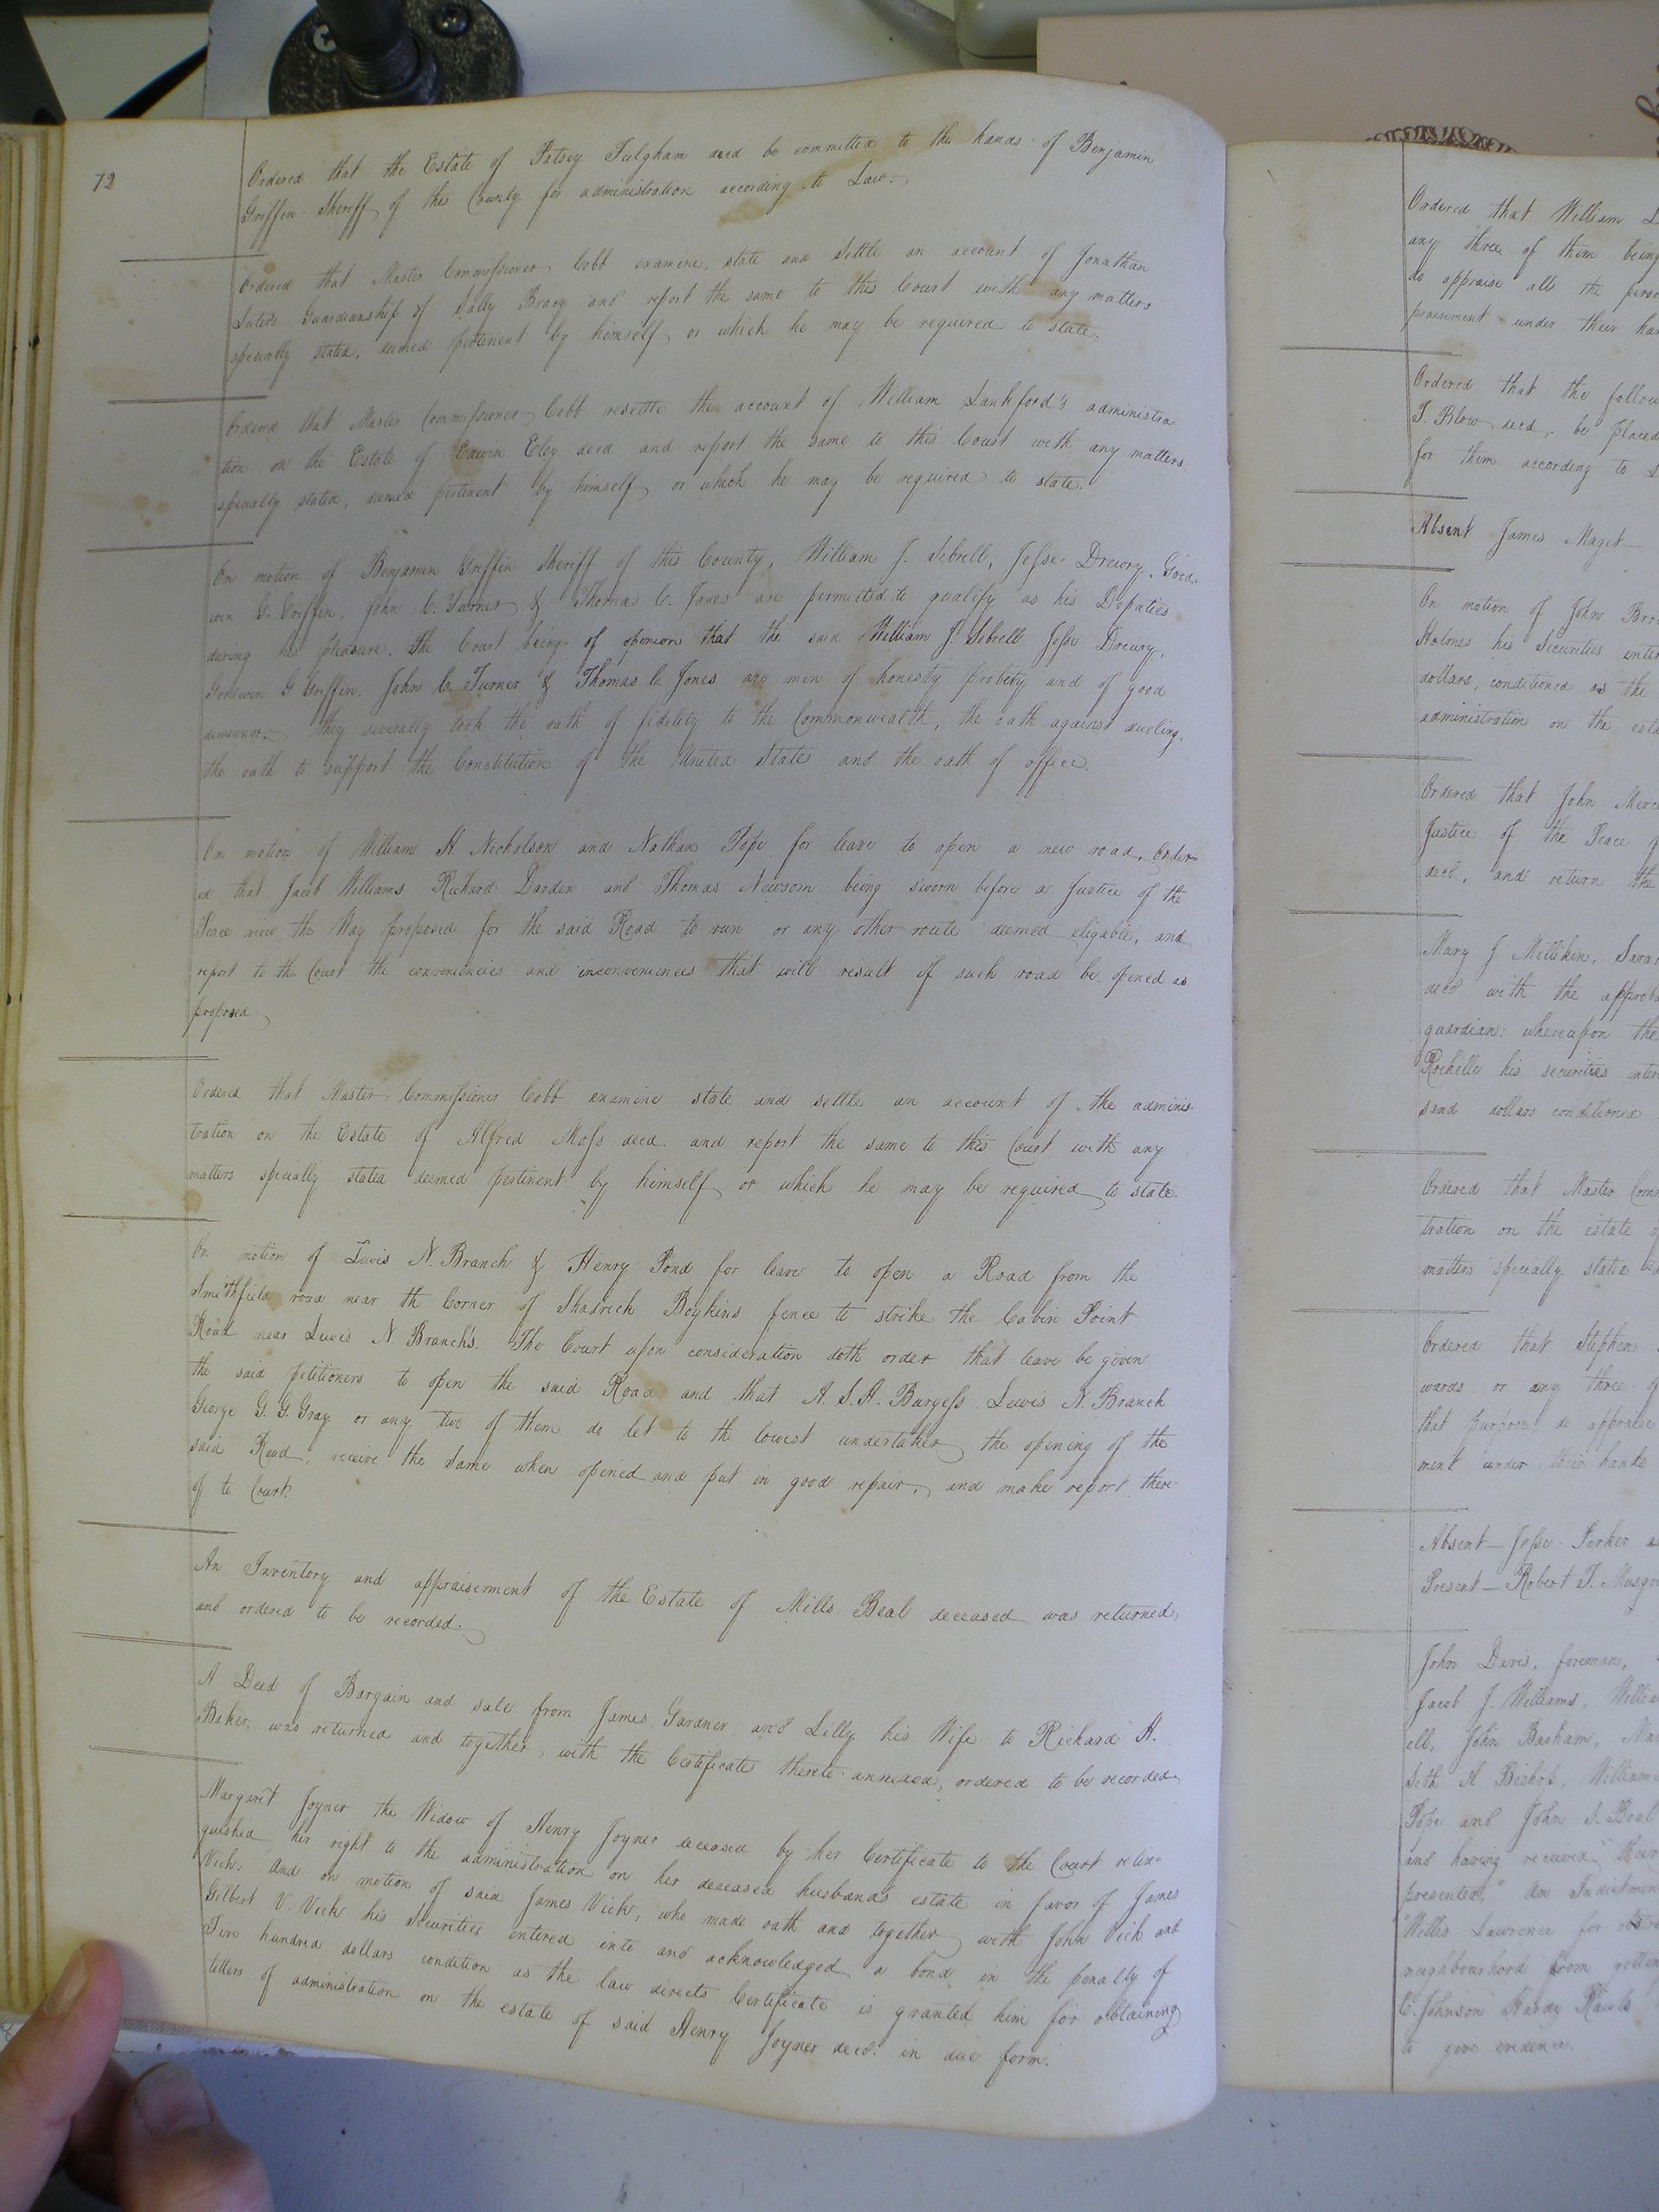 72
Ordered that the Estate of Patsey Fulgham decd be committed to the hands of Benjamin
Griffin Sheriff of this County for administration according to Law.
Ordered that Master Commissioner Cobb examine, state and settle an account of Jonathan
Luters Guardianship of Sally Bracy and report the same to this Court with any matters
specially stated, deemed pertinent by himself, or which he may be required to state.
Ordered that Master Commissioner Cobb resettle the account of William Lankford's administra
tion on the Estate of Edwin Eley decd and report the same to this Court with any matters
specially stated, deemed pertinent by himself or which he may be required to state.
On motion of Benjamin Griffin Sheriff of this County, William J. Sebrell, Jesse Drewry, Good
win G. Griffin, John C. Turner & Thomas C. Jones are permitted to qualify as his Deputies
during his pleasure. The Court being of opinion that the said William J. Sebrell Jesse Drewry,
Goodwin G Griffin, John C. Turner & Thomas C. Jones are men of honesty probity and of good
demeanor, they severally took the oath of fidelity to the Commonwealth, the oath against dueling,
the oath to support the Constitution of the United States and the oath of office.
On motion of William H. Nicholson and Nathan Pope for leave to open a new road, Order
ed that Jacob Williams Richard Darden and Thomas Newsom being sworn before a Justice of the
Peace view the Way proposed for the said Road to run or any other route deemed eligable, and
report to the Court the conveniencies and inconveniences that will result if such road be opened as
proposed
Ordered that Master Commissioner Cobb examine state and settle an account of the adminis
tration on the Estate of Alfred Moss decd. and report the same to this Court with any
matters specially stated deemed pertinent by himself or which he may be required to state.
On motion of Lewis N. Branch & Henry Pond for leave to open a Road from the
Smithfield road near th Corner of Shadrick Boykins fence to strike the Cabin Point
Road near Lewis N Branch's. The Court upon consideration doth order that leave be given
the said petitioners to open the said Road and that A. S. H. Burgess Lewis N. Branch
George G. G. Gray or any two of them do let to the lowest undertaker the opening of the
said Road, receive the same when opened and put in good repair, and make report there
of to Court.
An Inventory and appraisement of the Estate of Mills Beal deceased was returned,
and ordered to be recorded.
A Deed of Bargain and sale from James Gardner and Lilly his Wife to Richard H.
Baker, was returned and together with the Certificate thereto annexed, ordered to be recorded.
Margaret Joyner the Widow of Henry Joyner deceased by her Certificate to the Court relin
quished her right to the administration on her deceased husbands estate in favor of James
Vick: And on motion of said James Vick, who made oath and together with John Vick and
Gilbert V. Vick his Securities entered into and acknowledged a bond in the penalty of
Five hundred dollars condition as the law directs Certificate is granted him for obtaining
letters of administration on the estate of said Henry Joyner decd. in due form.
Ordered that William
any three of them being
do appraise all the
praisement under their
Ordered that the
T. Blow decd, be placed
for them according to
Absent James Maget
On motion of John
Holmes his Securities
dollars, conditioned as the
administration on the
Ordered that John
Justice of the Peace
decd, and return the
Mary J Millikin,
decd with the
guardian: whereupon the
Rochelle his securities
sand dollars conditioned
Ordered that Master
tration on the estate
matters specially stated
Ordered that Stephen
wards or any three of
that purpose do appraise
ment under their hands
Absent Jesse Parker
Present Robert T.
John Davis, foreman,
Jacob J. Williams,
ell, John Barham,
Seth A Bishop, William
Pope and John S. Beal
and having received their
presented, "An
Willis Lawrence for
neighbourhood from
C. Johnson Hardy Rawls
to give evidence.